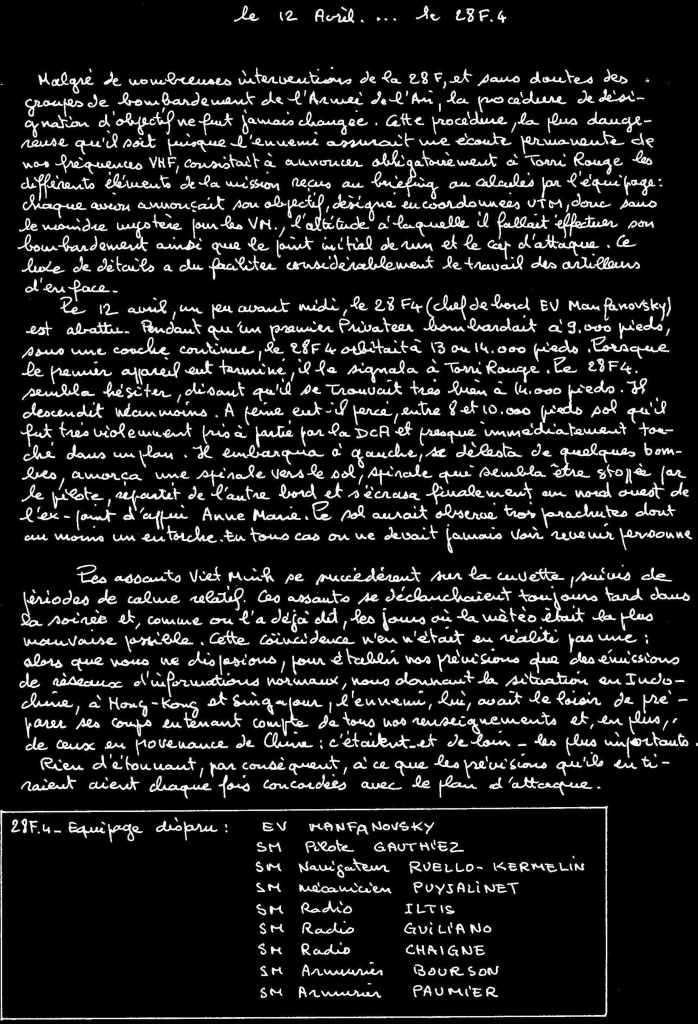 le 12 Avril. ... le 28F.4
Malgré de nombreuses interventions de la 28F, et sans doutes des
groupes de bombardement de l'Armée de l'Air, la procédure de dési-
gnation d'objectif ne fut jamais changée. Cette procédure, la plus dange-
reuse qu'il soit puisque l'ennemi assurait une écoute permanente de
nos fréquences VHF, consistait à annoncer obligatoirement à Torri Rouge les
différents éléments de la mission reçus au briefing ou calculés par l'équipage :
chaque avion annonçait son objectif, désigné en coordonnées UTM, donc sans
le moindre mystère pour les VM., l'altitude à laquelle il fallait effectuer son
bombardement ainsi que le point initial de run et le cap d'attaque. Ce
luxe de détails a du faciliter considérablement le travail des artilleurs
d'en face.
Le 12 avril, un peu avant midi, le 28F4 (chef de bord EV Manfanovsky)
est abattu. Pendant qu'un premier Privateer bombardait à 9.000 pieds,
sous une couche continue, le 28F4 orbitait à 13 ou 14.000 pieds. Lorsque
le premier appareil eut terminé, il le signala à Torri Rouge. Le 28F4.
sembla hésiter, disant qu'il se trouvait très bien à 14.000 pieds. Il
descendit néanmoins. A peine eut-il percé, entre 8 et 10.000 pieds sol qu'il
fut très violemment pris à partie par la DCA et presque immédiatement tou-
ché dans un plan. Il embarqua à gauche, se délesta de quelques bom-
bes, amorça une spirale vers le sol, spirale qui sembla être stoppée par
le pilote, repartit de l'autre bord et s'écrasa finalement au nord ouest de
l'ex-point d'appui Anne Marie. Le sol aurait observé trois parachutes dont
au moins un en torche. En tous cas on ne devait jamais voir revenir personne
Les assauts Viet Minh se succédèrent sur la cuvette, suivis de
périodes de calme relatif. Ces assauts se déclanchaient toujours tard dans
la soirée et, comme on l'a déjà dit, les jours où la météo était la plus
mauvaise possible. Cette coïncidence n'en n'était en réalité pas une :
alors que nous ne disposions, pour établir nos prévisions que des émissions
de réseaux d'informations normaux, nous donnant la situation en Indo-
chine, à Hong-Kong et Singapour, l'ennemi, lui, avait le loisir de pré-
parer ses coups en tenant compte de tous nos renseignements et, en plus,
de ceux en provenance de Chine : c'étaient _ et de loin _ les plus importants.
Rien d'étonnant, par conséquent, à ce que les prévisions qu'ils en ti-
raient aient chaque fois concordées avec le plan d'attaque.
28F.4_ Equipage disparu : EV MANFANOVSKY
SM Pilote GAUTHIEZ
SM Navigateur RUELLO-KERMELIN
SM mécanicien PUYJALINET
SM Radio ILTIS
SM Radio GUILIANO
SM Radio CHAIGNE
SM Armurier BOURSON
SM Armurier PAUMIER